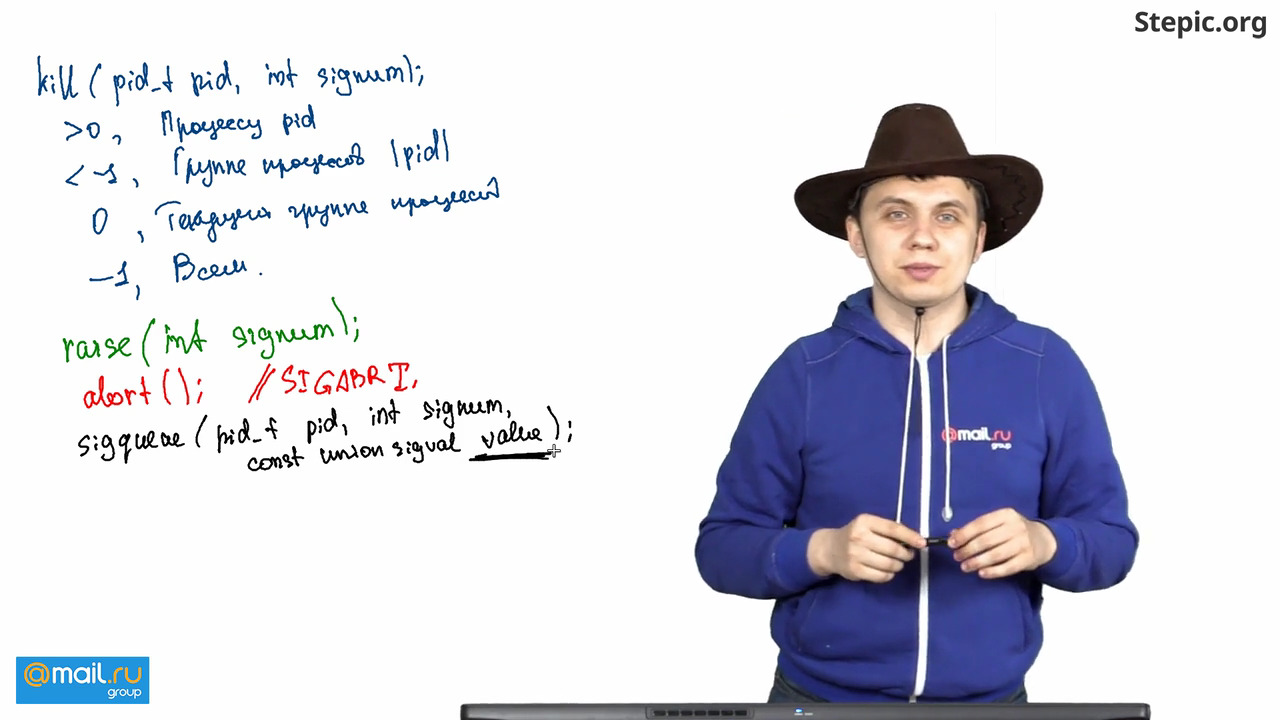 Stepic.org
kill(pid_t pid, int signum);
>0, Процессу pid
<-1, Группе процессов |pid|
0, Текущей группе процессов
-1, Всем.
raise(int signum);
abort(); //SIGABRT,
sigqueue(pid_t pid, int signum,
const union sigval value);
@mail.ru
group
@mail.ru
group